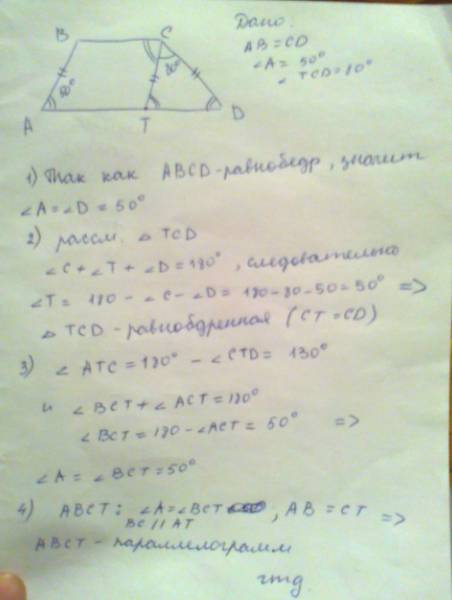 Дано.
AB = CD
∠A = 50°
∠TCD = 80°
B C
80°
50°
A T D
1) Так как ABCD - равнобедр, значит
∠A = ∠D = 50°
2) рассм. △ TCD
∠C + ∠T + ∠D = 180°, следовательно
∠T = 180 - ∠C - ∠D = 180 - 80 - 50 = 50° =>
△ TCD - равнобдренная (CT = CD)
3) ∠ATC = 180° - ∠CTD = 130°
и ∠BCT + ∠ACT = 180°
∠BCT = 180 - ∠ACT = 50° =>
∠A = ∠BCT = 50°
4) ABCT: ∠A = ∠BCT, AB = CT =>
BC || AT
ABCT - параллелограмм
чтд